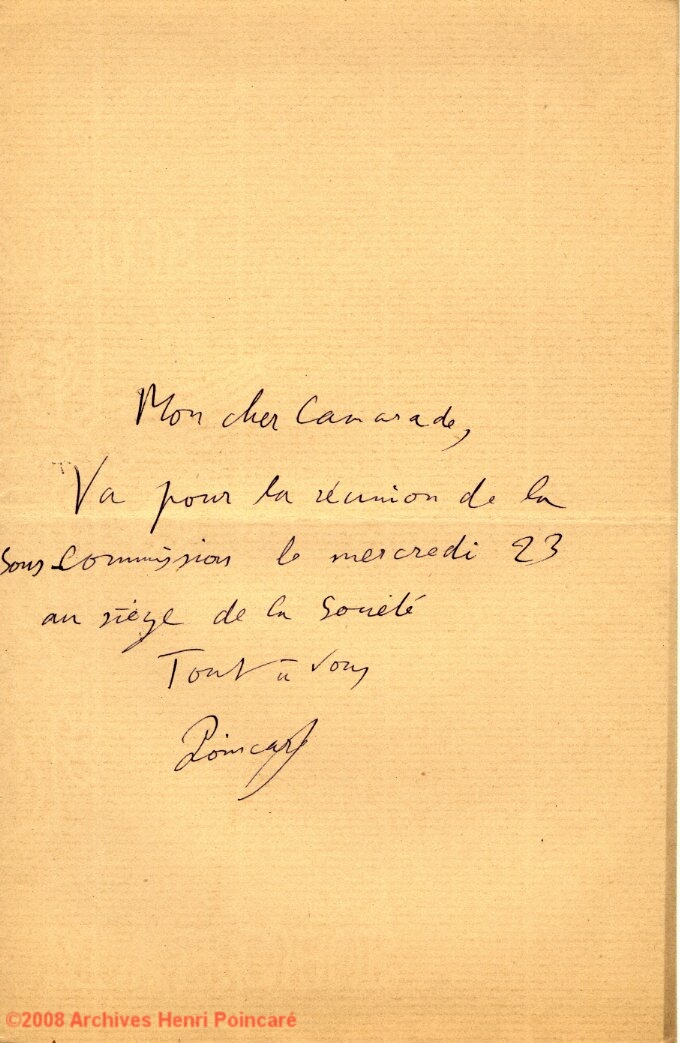 Mon cher Camarade,
Va pour la réunion de la
Sous-commission le mercredi 23
au siège de la Société
Tout à vous
Poincaré
©2008 Archives Henri Poincaré